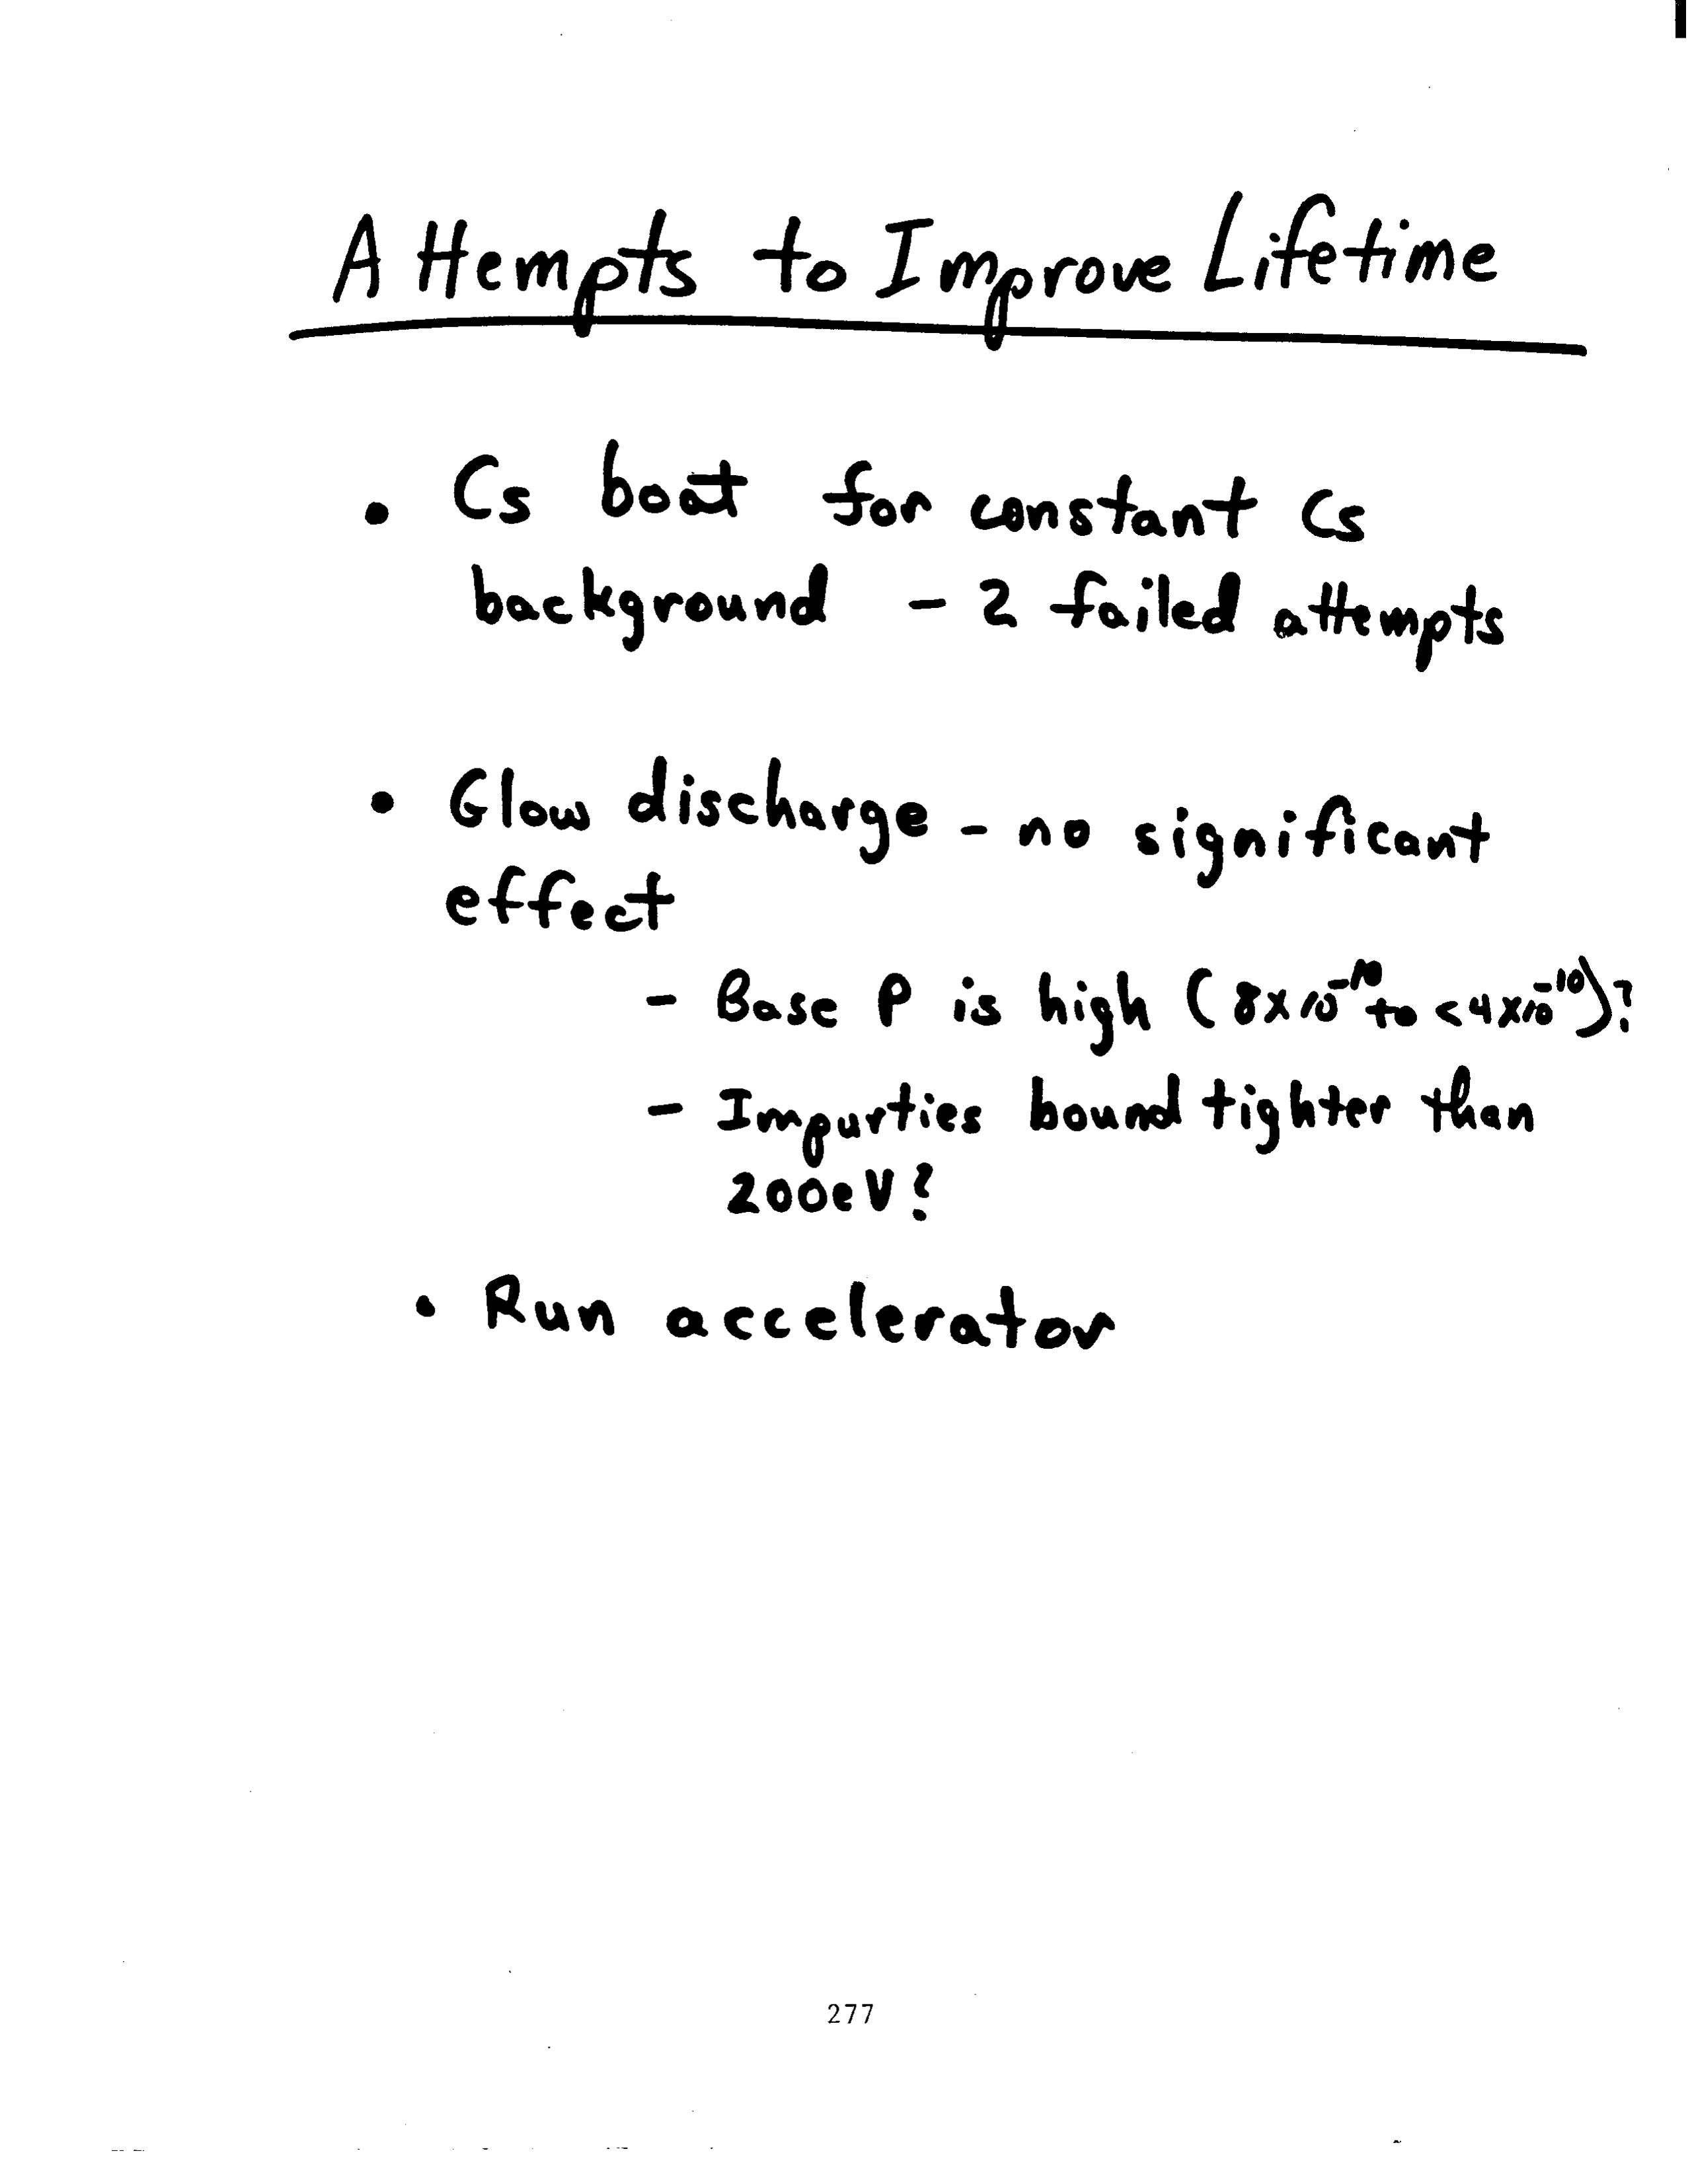 Attempts to Improve Lifetime
• Cs boat for constant Cs
background - 2 failed attempts
• Glow discharge - no significant
effect
- Base P is high (8x10⁻¹⁰ to <4x10⁻¹⁰)?
- Impurties bound tighter than
200eV?
• Run accelerator
277